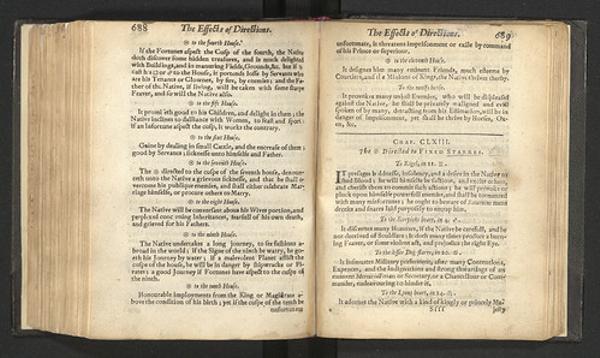 688
The Effects of Directions.
☉ to the fourth House.
If the Fortunes aspect the Cusp of the fourth, the Native
doth discover some hidden treasures, and is much delighted
with Buildings, and in manuring Fields, Grounds, &c. but if
to the House, it portends losse by Servants who
are his Tenants or Clowner, by fire, by enemies; and the Fa-
ther of the Native, if living, will be taken with some sharpe
Feaver, and so will the Native also.
☉ to the fift House.
It promiseth good to his Children, and delight in them; the
Native inclines to dalliance with Women, to Feast and sport:
if an Infortune aspect the cusp, it works the contrary.
☉ to the sixt House.
Gaine by dealing in small Cattle, and the encrease of them;
good by Servants; sicknesse unto himselfe and Father.
☉ to the seventh House.
The ☉ directed to the cuspe of the seventh house, denoun-
ceth unto the Native a grievous sicknesse, and that he shall o-
vercome his publique enemies, and shall either celebrate Mar-
riage himselfe, or procure others to Marry.
☉ to the eight House.
The Native will be conversant about his Wives portion, and
perplexed concerning Inheritances, fearfull of his own death,
and grieved for his Fathers.
☉ to the ninth House.
The Native undertakes a long journey, to see fashions a-
broad in the world; if the Signe of the ninth be watry, he go-
eth his Journey by water; if a malevolent Planet afflict the
cuspe of the house, he will be in danger by shipwracke or Pi-
rates; a good Journey if Fortunes have aspect to the cuspe of
the ninth.
☉ to the tenth House.
Honourable imployments from the King or Magistrate a-
bove the condition of his birth; yet if the cuspe of the tenth be
unfortunate
The Effects of Directions.
689
unfortunate, it threatens imprisonment or exile by command
of his Prince or superiour.
☉ to the eleventh House.
It designes him many eminent Friends, much esteeme by
Courtiers, and if a Minion of Kings, the Native thrives thereby.
To the twelfth house.
It provokes many unjust Enemies, who will be displeased
against the Native, he shall be privately maligned and evill
spoken of by many, detracting from his Estimation, will be in
danger of Imprisonment, yet shall he thrive by Horses, Ox-
en, &c.
CHAP. CLXIII.
The ☉ Directed to FIXED STARRES.
To Rigel, in 11. ♊.
IT presages boldnesse, insolency, and a desire in the Native to
shed Blood; he will himselfe be factious, and excite others,
and cherish them to commit such actions; he will provoke or
pluck upon himselfe powerfull enemies, and shall be tormented
with many misfortunes; he ought to beware of
deceits and snares laid purposely to entrap him.
To the Scorpions heart, in 4. ♐.
It discovers many Honours, if the Native be carefull, and be
not deceived of Souldiers; it doth many times produce a burn-
ing Feaver, or some violent act, and prejudice the right Eye.
To the lesser Dog starre, in 20. ♋.
It intimates Military preferment, after many Contentions,
Expences, and the indignations and strong thwartings of an
eminent or Secretary, or a Chancellour or Com-
mander, endeavouring to hinder it.
To the Lyons heart, in 24. ♌.
It adornes the Native with a kind of kingly or princely Ma-
Ssss
jesty